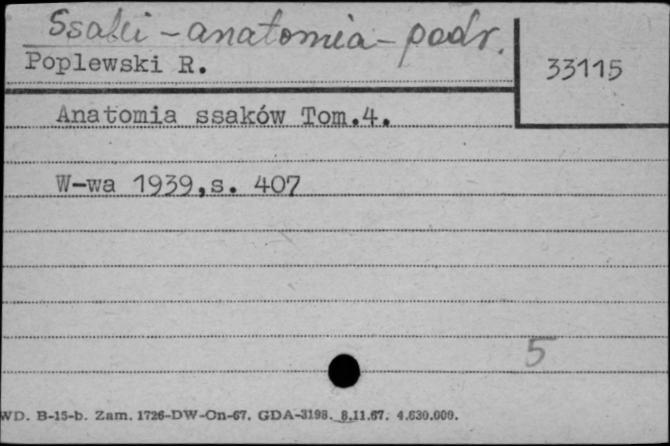 Ssaki - anatomia - podr.
Poplewski R.
33115
Anatomia ssaków Tom.4.
W-wa 1939,s. 407
5
WD. B-15-b. Zam. 1726-DW-On-67. GDA-3198. 8.11.67. 4.630.000.